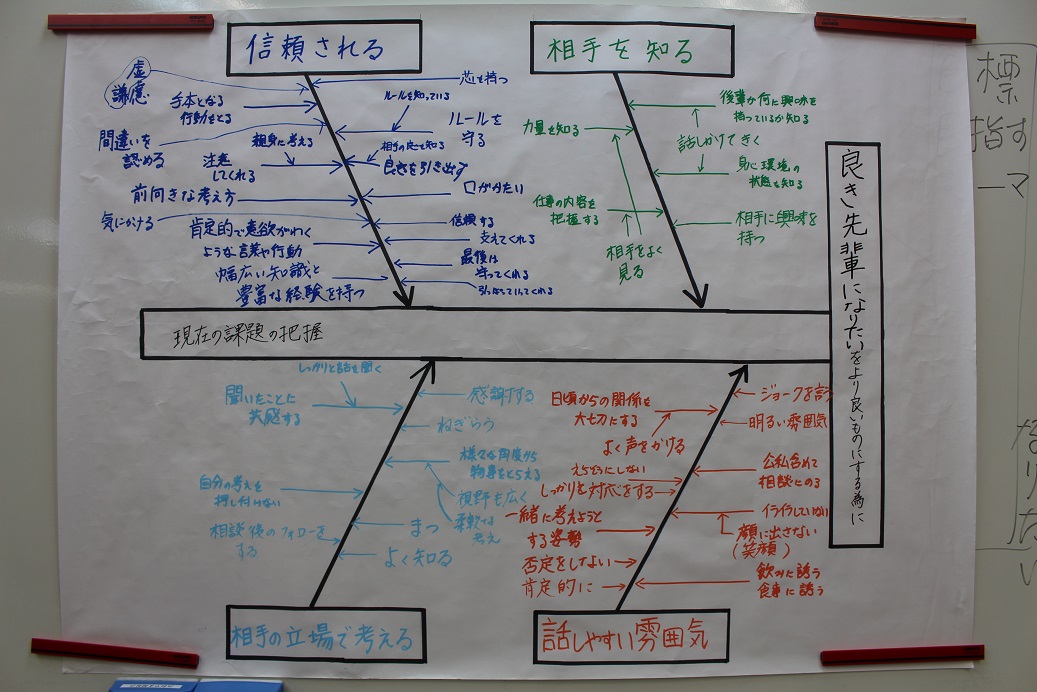 信頼される
虚
謙虚
手本となる
行動をとる
間違いを
認める
親身に考える
注意
してくれる
前向きな考え方
気にかける
肯定的で意欲がわく
ような言葉や行動
幅広い知識と
豊富な経験を持つ
芯を持つ
ルールを知っている
ルールを
守る
相手の良さを知る
良さを引き出す
口がかたい
信頼する
支えてくれる
最後は
守ってくれる
引っぱっていってくれる
相手を知る
後輩が何に興味を
持っているか知る
力量を知る
話しかけてきく
身心環境の
状態を知る
仕事の内容を
把握する
相手に興味を
持つ
相手をよく
見る
現在の課題の把握
良き先輩になりたいをより良いものにする為に
しっかりと話を聞く
聞いたことに
共感する
感謝する
ねぎらう
様々な角度から
物事をとらえる
視野も広く
柔軟な
考え
自分の考えを
押し付けない
相談後のフォローを
する
まつ
よく知る
相手の立場で考える
日頃からの関係を
大切にする
よく声をかける
ジョークを言う
明るい雰囲気
えらそうにしない
しっかりと対応をする
公私含めて
相談にのる
一緒に考えようと
する姿勢
イライラしていない
顔に出さない
(笑顔)
否定をしない
肯定的に
飲みに誘う
食事に誘う
話しやすい雰囲気
標
指す
ーマ
なりたい